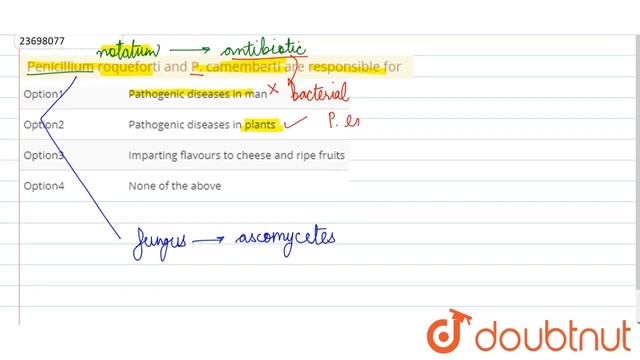 23698077
notatum → antibiotic
Penicillium roqueforti and P. camemberti are responsible for
Option1 Pathogenic diseases in man × bacterial
Option2 Pathogenic diseases in plants ✓ P. es
Option3 Imparting flavours to cheese and ripe fruits
Option4 None of the above
fungus → ascomycetes
doubtnut